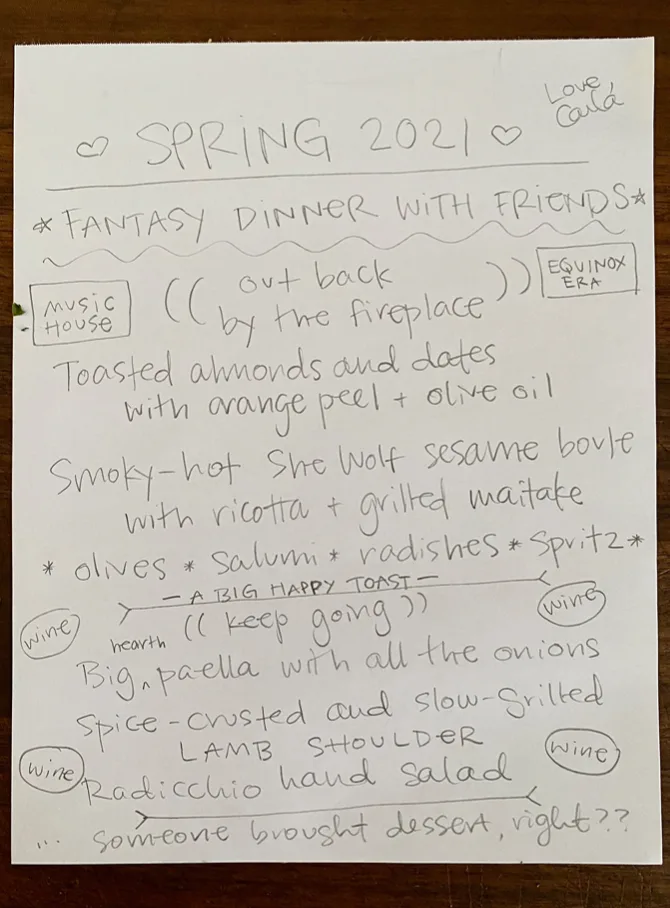 Love,
Carla
♡ SPRING 2021 ♡
*FANTASY DINNER WITH FRIENDS*
MUSIC
HOUSE
((out back
by the fireplace))
EQUINOX
ERA
Toasted almonds and dates
with orange peel + olive oil
Smoky-hot She Wolf sesame boule
with ricotta + grilled maitake
* olives * salumi * radishes * Spritz *
— A BIG HAPPY TOAST —
wine
((keep going))
wine
hearth
Big ^ paella with all the onions
Spice-crusted and slow-grilled
LAMB SHOULDER
wine
wine
Radicchio hand salad
... someone brought dessert, right??